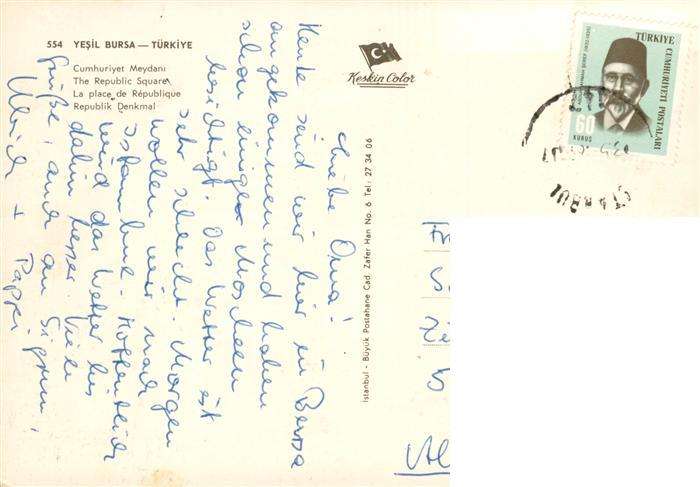 554 YEŞİL BURSA — TÜRKİYE
Cumhuriyet Meydanı
The Republic Square
La place de République
Republik Denkmal
Keskin Color
TÜRKİYE
CUMHURİYETİ POSTALARI
60
KURUŞ
İstanbul - Büyük Postahane Cad. Zafer Han No. 6 Tel: 27 34 06
Liebe Oma!
Heute sind wir hier in Bursa
angekommen und haben
schon einige Moscheen
besichtigt. Das Wetter ist
sehr schlecht. Morgen
wollen wir nach
Istanbul. Hoffentlich
wird das Wetter bis
dahin besser. Viele
Grüße, auch an Sigrun,
Ulrich + Pappi